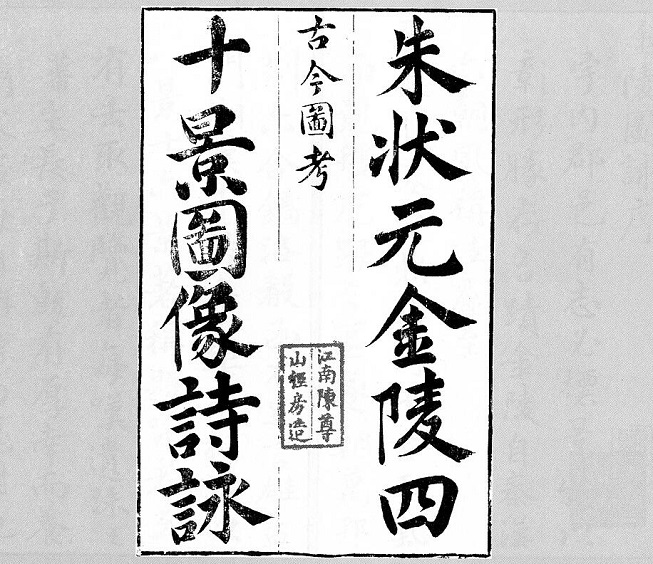 朱状元金陵四
古今圖考
江南陳尊
山經房造
十景圖像詩詠